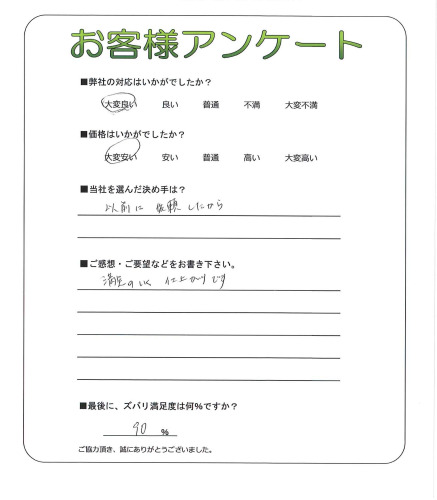 お客様アンケート
■弊社の対応はいかがでしたか？
大変良い 良い 普通 不満 大変不満
■価格はいかがでしたか？
大変安い 安い 普通 高い 大変高い
■当社を選んだ決め手は？
以前に依頼したから
■ご感想・ご要望などをお書き下さい。
満足のいく仕上がりです
■最後に、ズバリ満足度は何％ですか？
90 ％
ご協力頂き、誠にありがとうございました。